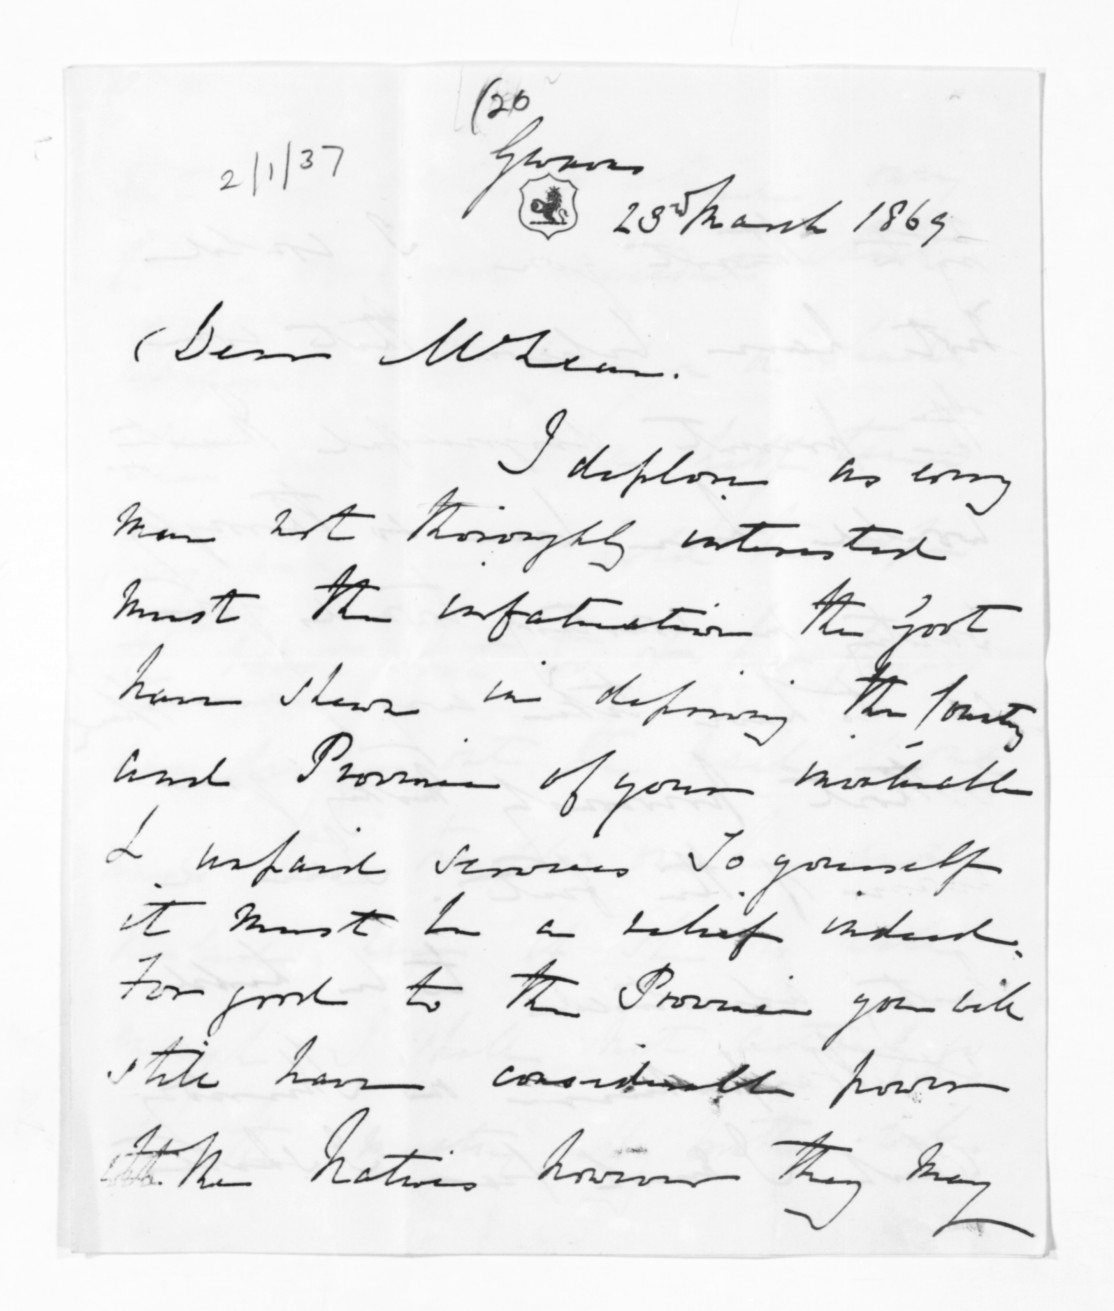 (20
2/1/37
Gwavas
23rd March 1869
Dear McLean.
I deplore as every
man not thoroughly interested
must the infatuation the Govt
have shewn in depriving the Country
and Province of your invaluable
& unpaid services To yourself
it must be a relief indeed.
For good to the Province you will
still have considerable power
the Natives however they may